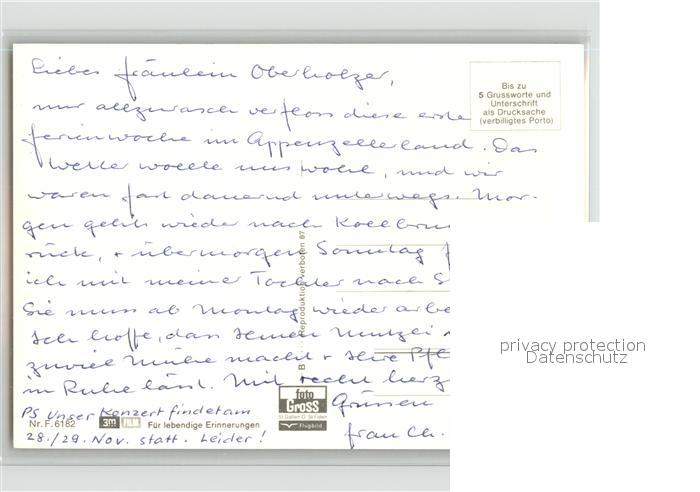 Liebes Fräulein Oberholzer,
nur allzurasch verfloss diese erste
Ferienwoche im Appenzellerland. Das
Wetter wollte uns wohl, und wir
waren fast dauernd unterwegs. Mor-
gen gehts wieder nach Kollbrun
rück, + übermorgen Sonntag f
ich mit meiner Tochter nach S
Sie muss ab Montag wieder arbe
Ich hoffe, dass Ihnen
zuviel Mühe macht + Ihre Pfl
in Ruhe lässt. Mit recht herz
Grüssen
Frau Ch.
PS Unser Konzert findet am
28./29. Nov. statt. Leider!
Bis zu
5 Grussworte und
Unterschrift
als Drucksache
(verbilligtes Porto)
Reproduktion verboten 87
Nr. F. 6182
3m FILM
Für lebendige Erinnerungen
foto
Gross
St.Gallen
Flugbild
privacy protection
Datenschutz